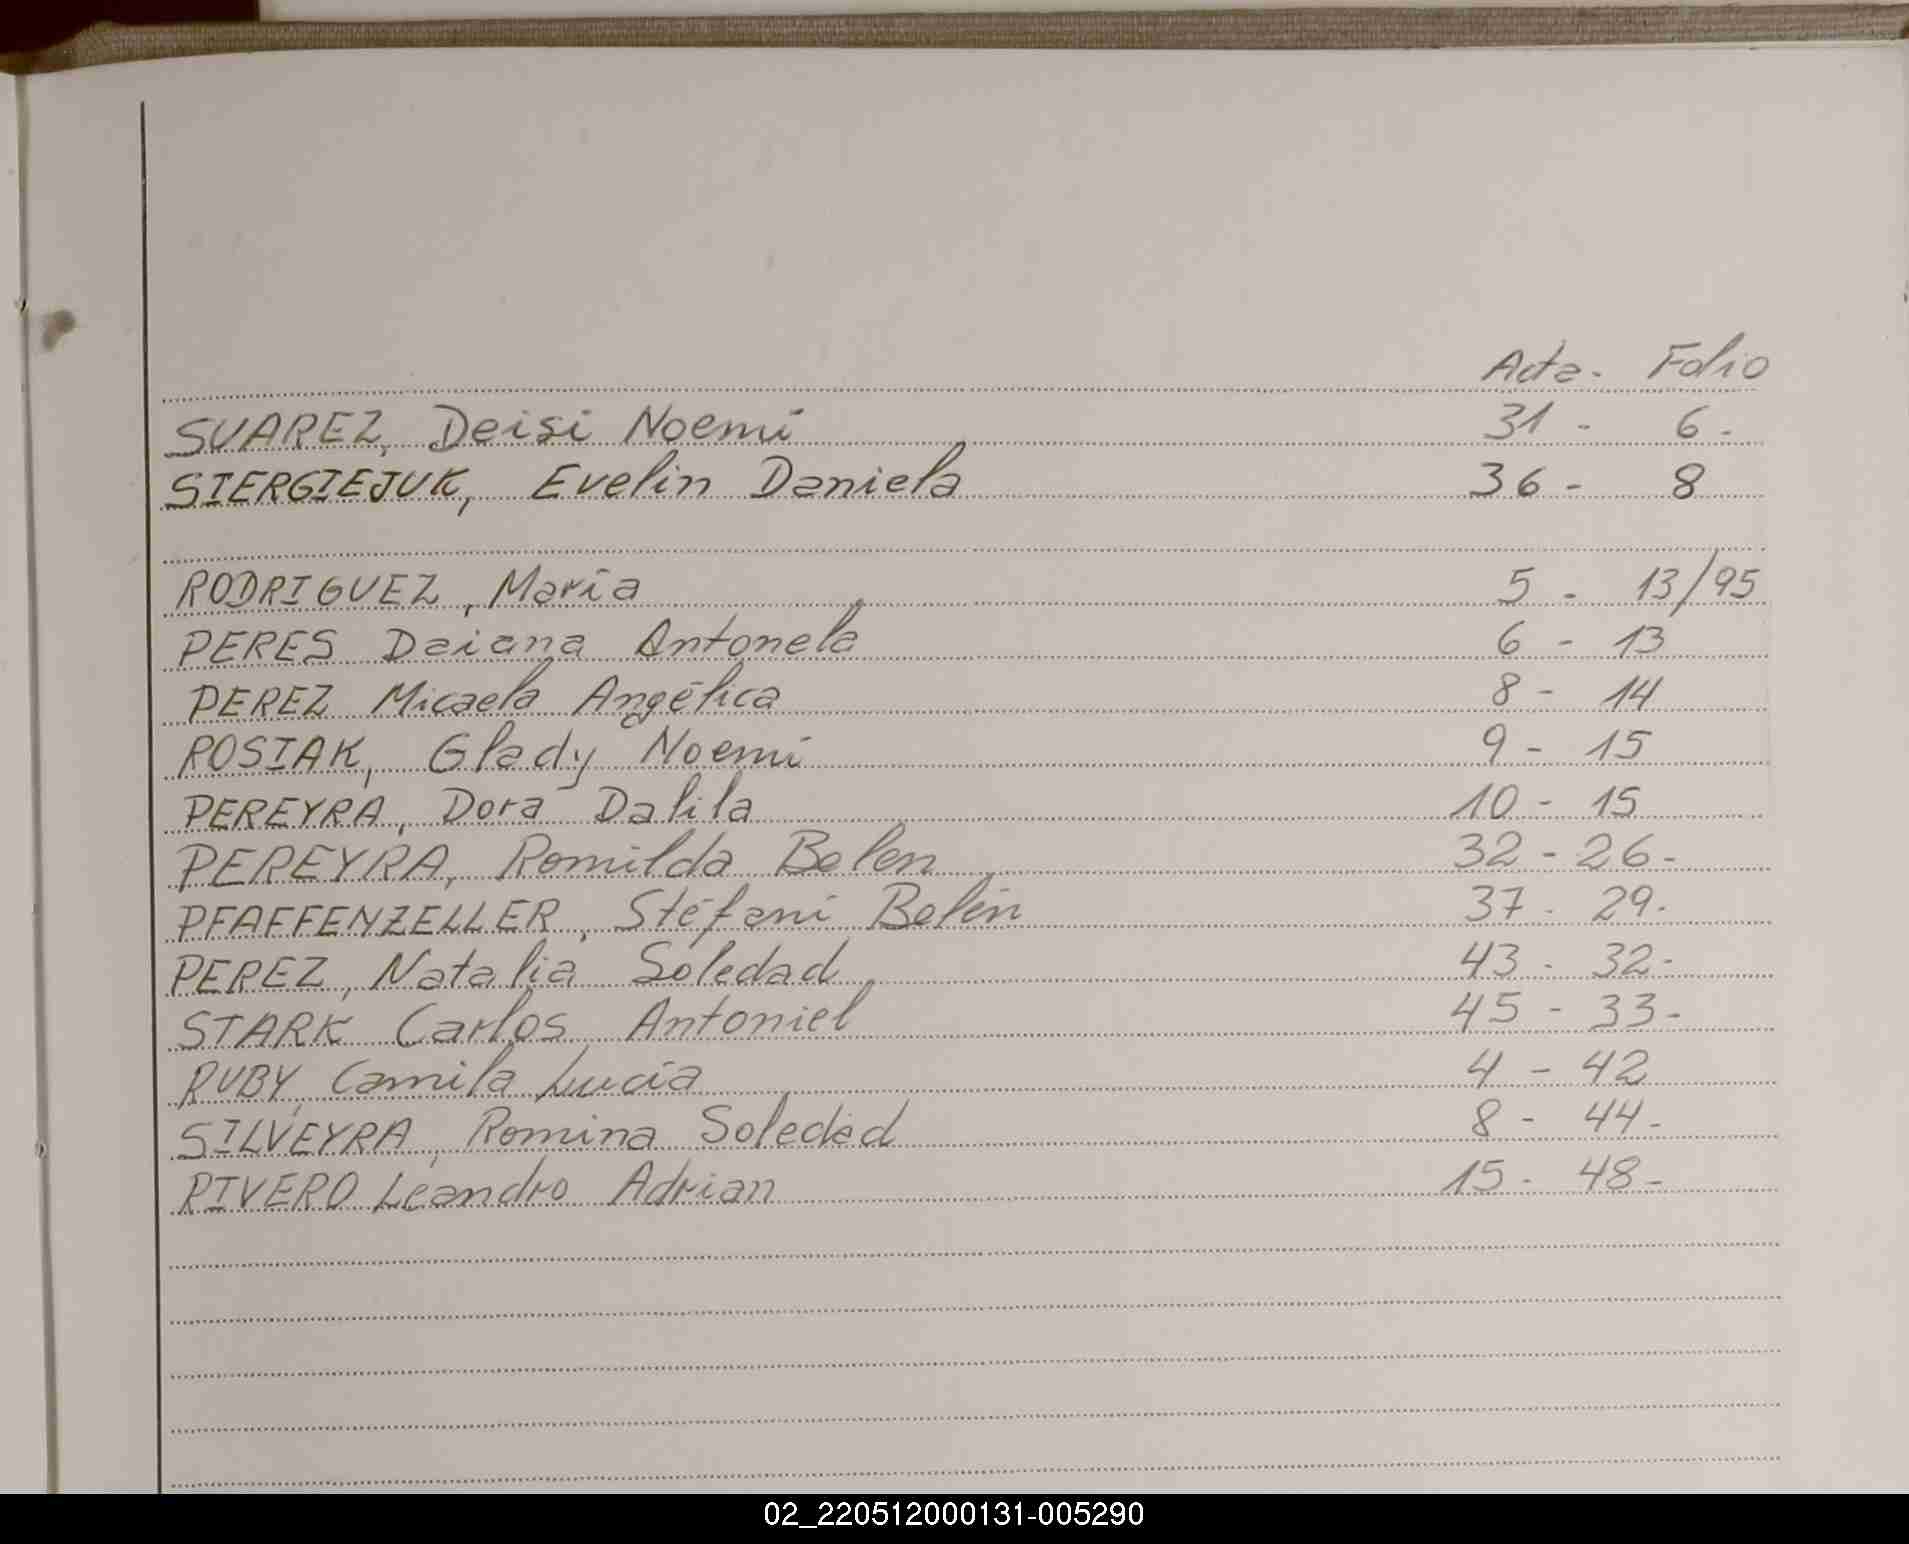 Acta - Folio
SUAREZ, Deisi Noemí 31 - 6 -
SIERGIEJUK, Evelin Daniela 36 - 8
RODRIGUEZ, María 5 - 13/95
PERES Daiana Antonela 6 - 13
PEREZ Micaela Angélica 8 - 14
ROSIAK, Glady Noemí 9 - 15
PEREYRA, Dora Dalila 10 - 15
PEREYRA, Romilda Belen 32 - 26 -
PFAFFENZELLER, Stéfani Belén 37 - 29 -
PEREZ, Natalia Soledad 43 - 32 -
STARK Carlos Antoniel 45 - 33 -
RUBY, Camila Lucía 4 - 42
SILVEYRA, Romina Soledad 8 - 44 -
RIVERO Leandro Adrian 15 - 48 -
02_220512000131-005290